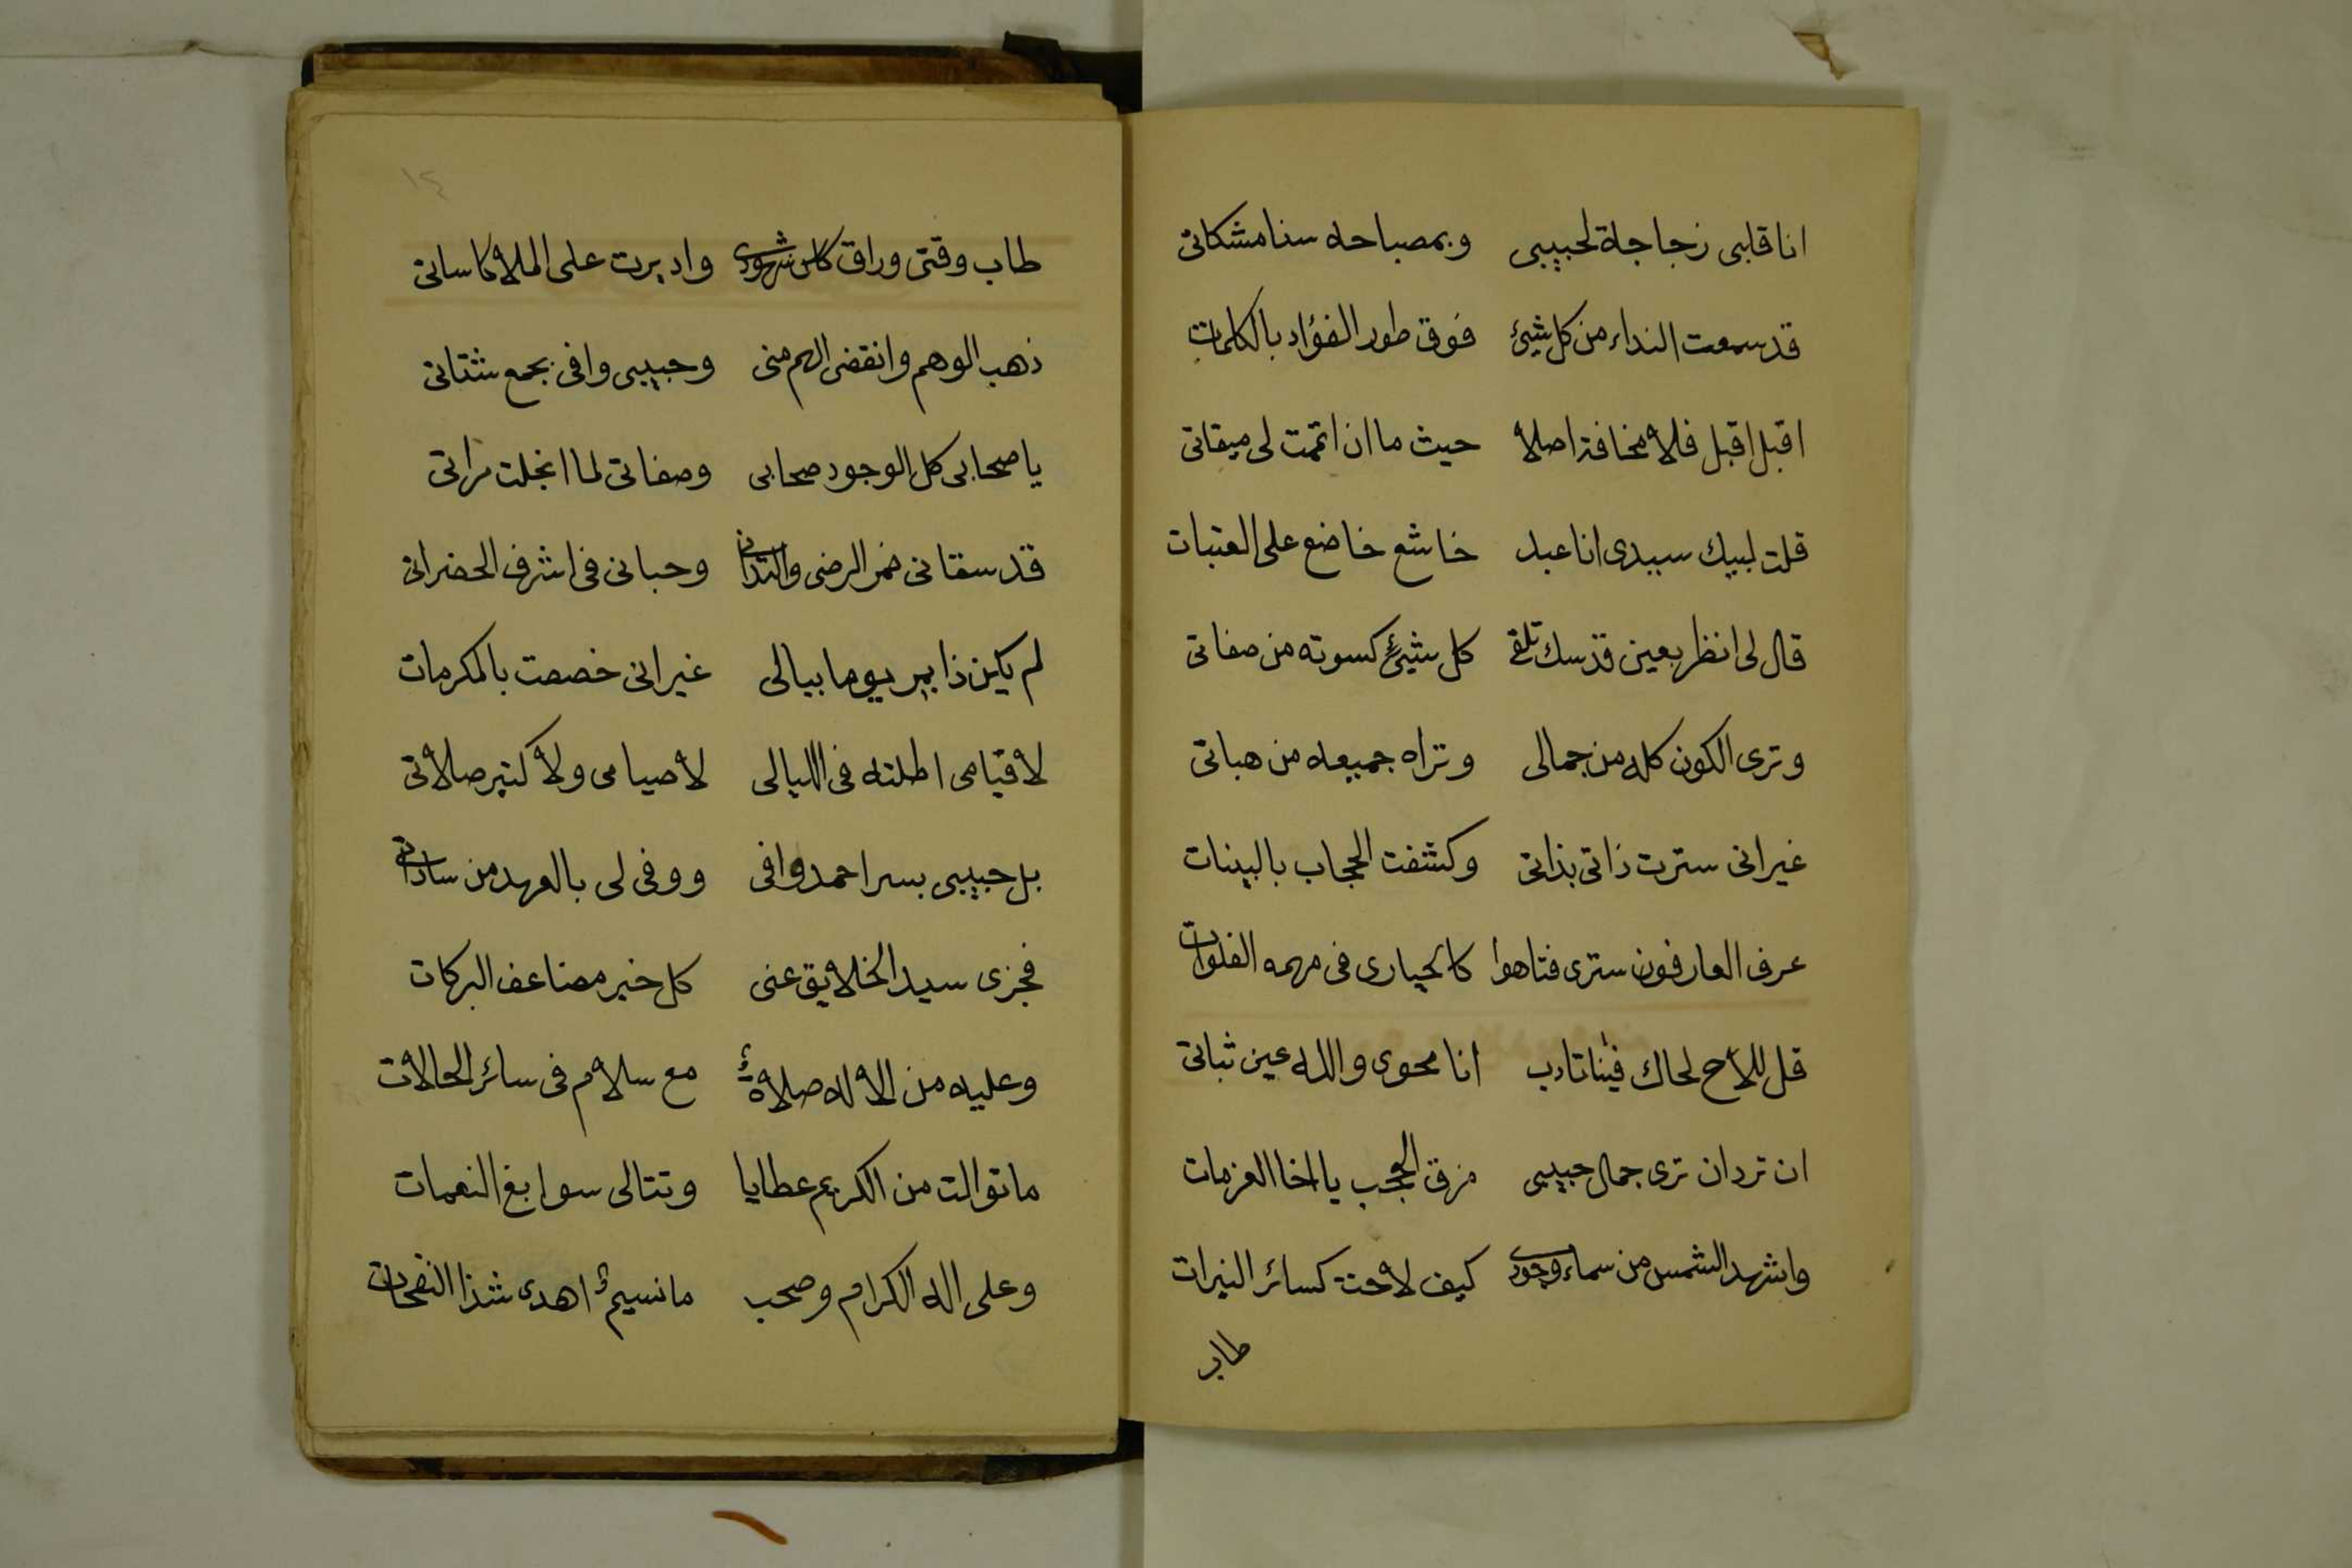 انا قلبى زجاجة لحبيبى وبمصباحه سنا مشكاتى
قد سمعت النداء من كل شيئ فوق طور الفؤاد بالكلمات
اقبل اقبل فلا مخافة اصلا حيث ما ان اتممت لى ميقاتى
قلت لبيك سيدى انا عبد خاشع خاضع على العتبات
قال لى انظر بعين قدسك تلقى كل شيئ كسوته من صفاتى
وترى الكون كله من جمالى وتراه جميعه من هباتى
غير انى سترت ذاتى بذاتى وكشفت الحجاب بالبينات
عرف العارفون سترى فتاهوا كالحيارى فى مهمه الفلوات
قل للاح لحاك فينا تادب انا محوى والله عين ثباتى
ان ترد ان ترى جمال حبيبى مزق الحجب يا اخا العزمات
واشهد الشمس من سماء وجودى كيف لاحت كسائر النيرات
طاب
١٤
طاب وقتى وراق كاس شهودى واديرت على الملا كاساتى
ذهب الوهم وانقضى الهم منى وحبيبى وافى بجمع شتاتى
يا صحابى كل الوجود صحابى وصفاتى لما انجلت مراتى
قد سقانى خمر الرضى والتدانى وحبانى فى اشرف الحضراتى
لم يكن ذا يمر يوما ببالى غير انى خصصت بالمكرمات
لا قيامى اطلته فى الليالى لا صيامى ولا كثير صلاتى
بل حبيبى بسر احمد وافى ووفى لى بالعهد من ساداتى
فجزى سيد الخلايق عنى كل خير مضاعف البركات
وعليه من الاله صلاة مع سلام فى سائر الحالات
ما توالت من الكريم عطايا وتتالى سوابغ النعمات
وعلى اله الكرام وصحب ما نسيم اهدى شذا النفحات